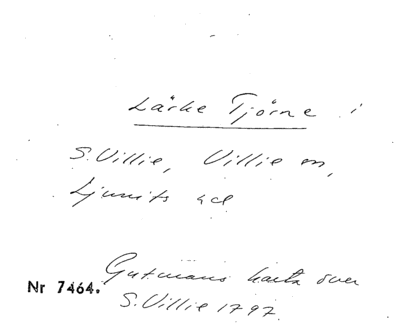 Lärke Tjörne i
S. Villie, Villie sn,
Ljunits hd
Gutmans karta över
Nr 7464.
S. Villie 1797.